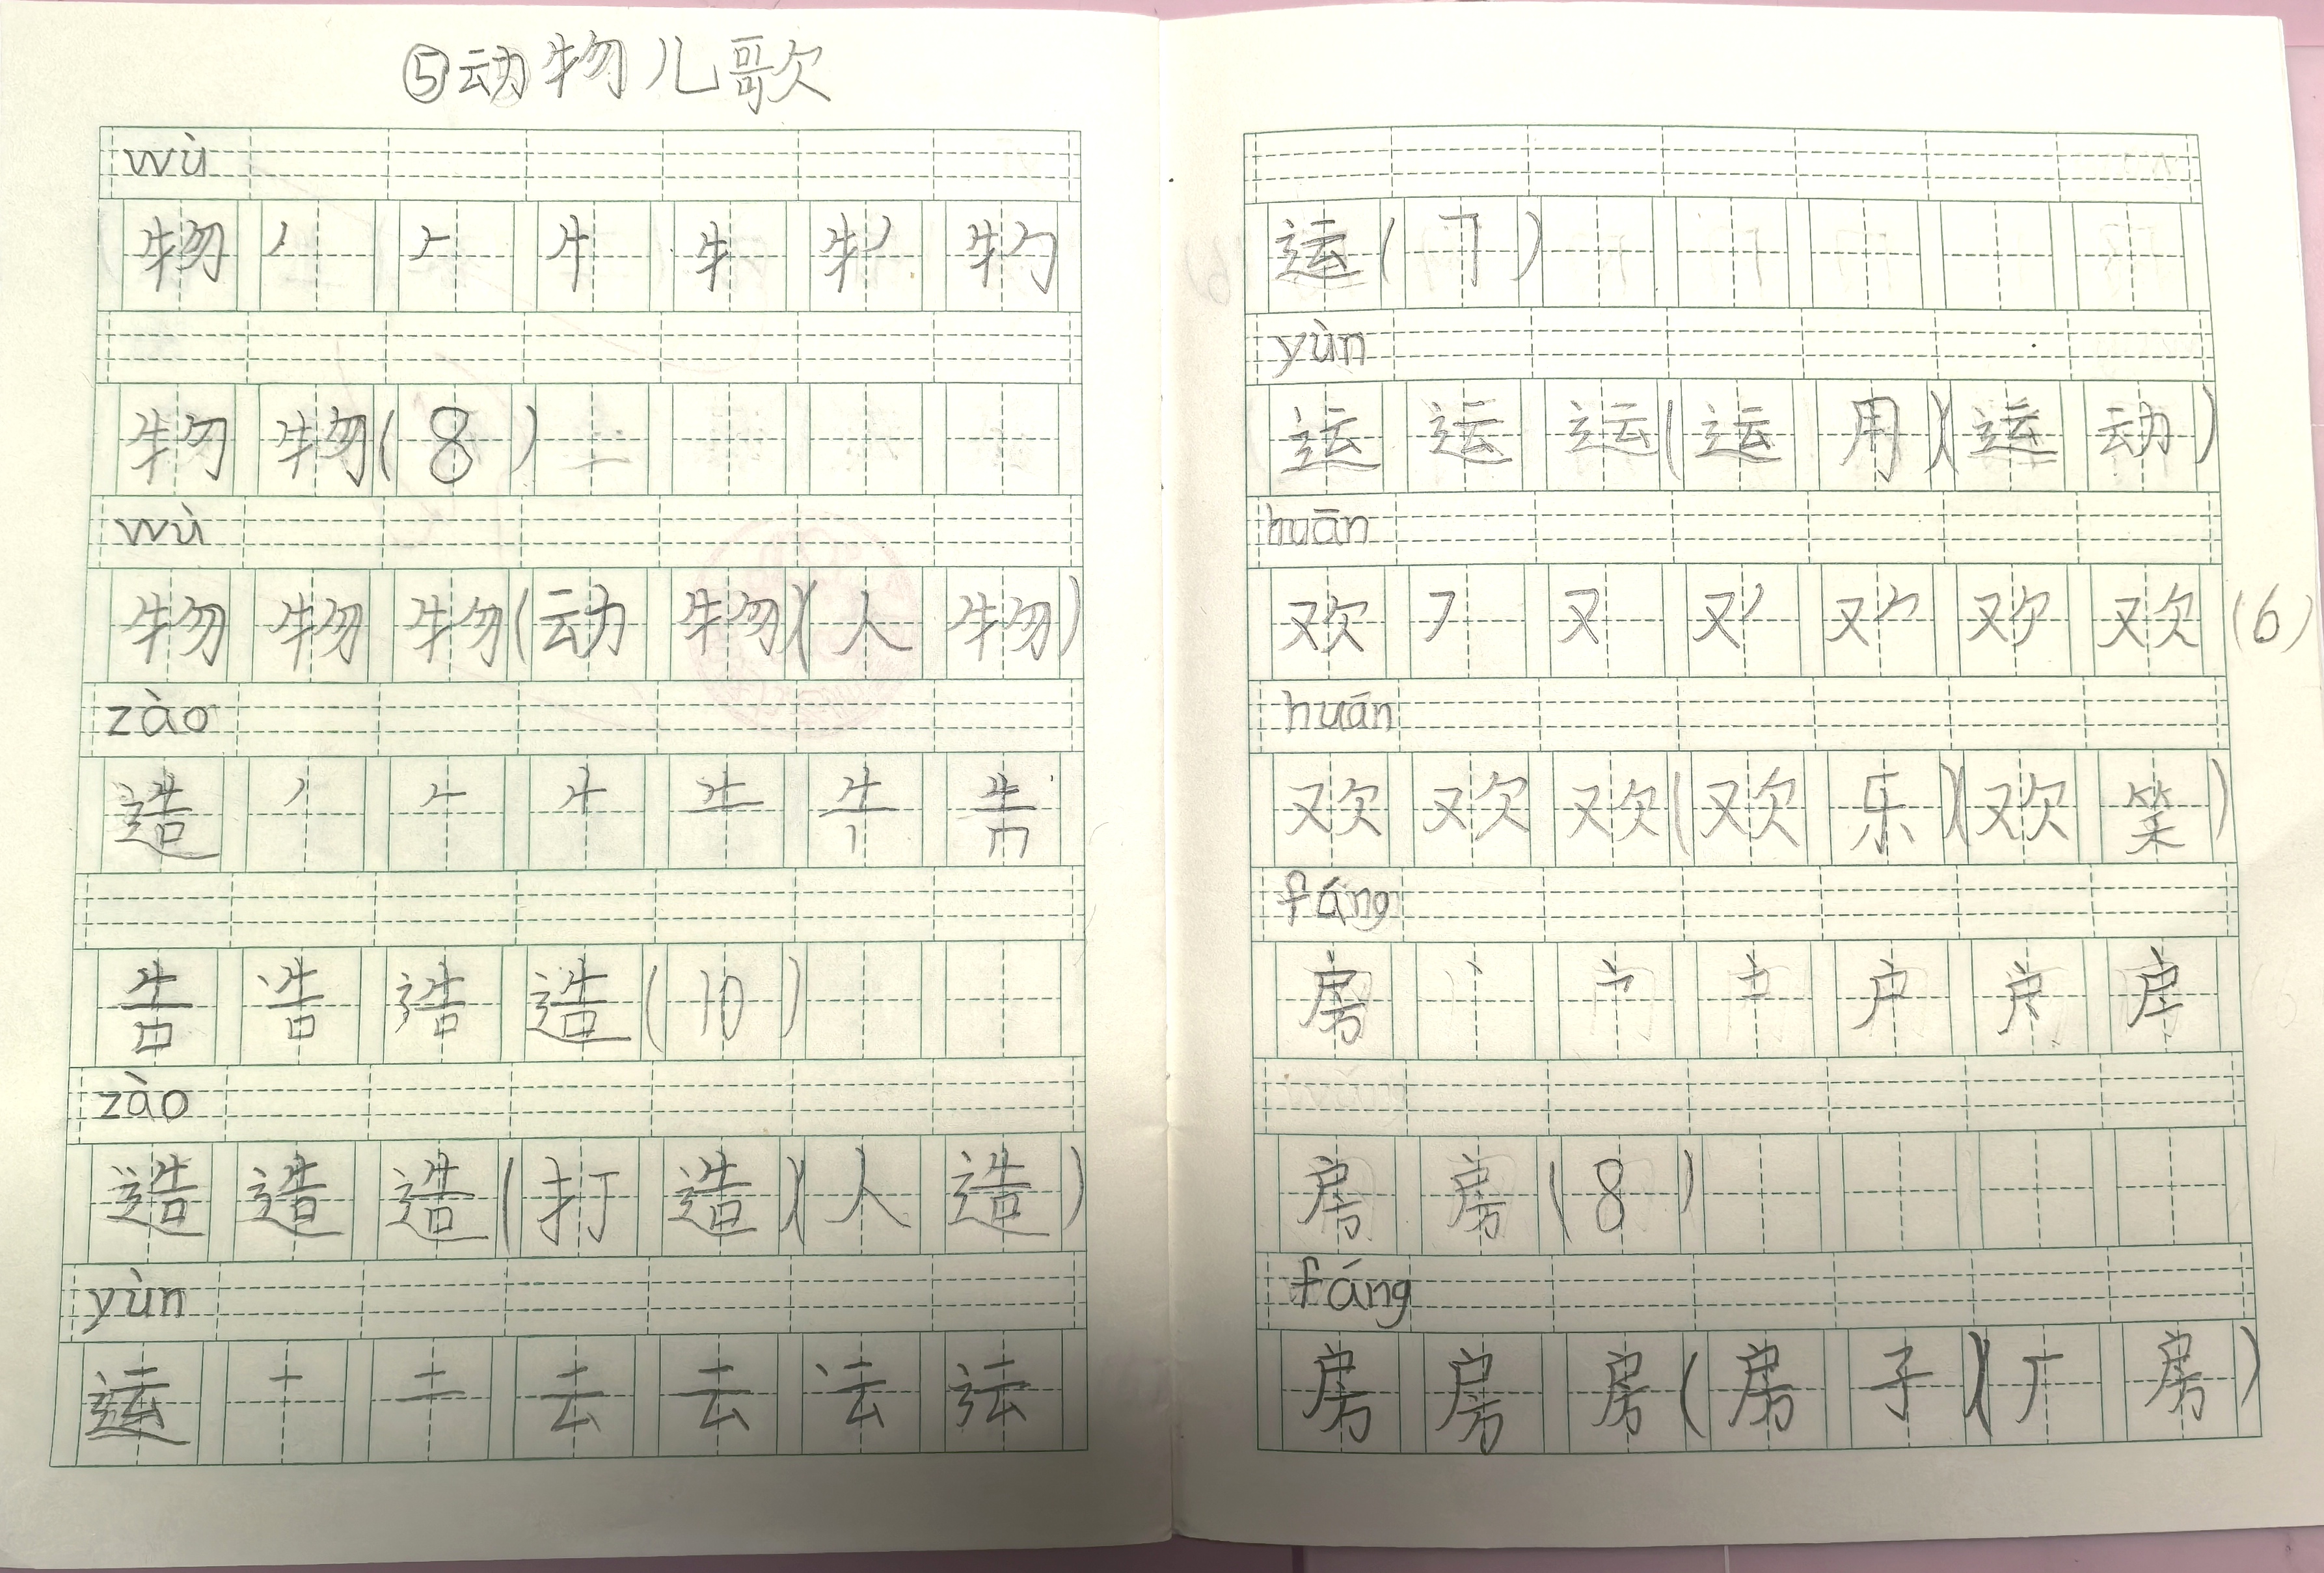 ⑤动物儿歌
wù
物 牜 物
物 物 ( 8 )
wù
物 物 物 (动 物)(人 物)
zào
造 丿 𠂉 牛
告 造 ( 10 )
zào
造 造 造 (打 造)(人 造)
yùn
运 一 二 云 云
运 ( 7 )
yùn
运 运 运 (运 用)(运 动)
huān
欢 フ 又 欢 (6)
huān
欢 欢 欢 (欢 乐)(欢 笑)
fáng
房 丶 户
房 房 ( 8 )
fáng
房 房 房 (房 子)(厂 房)